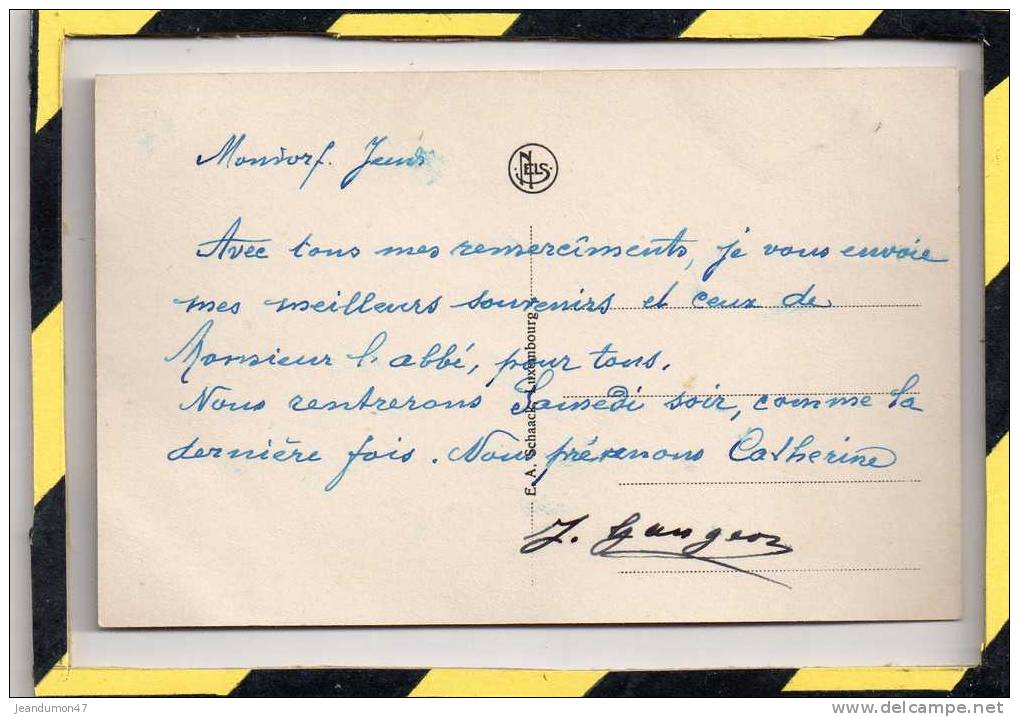 Mondorf. Jeudi
NELS
Avec tous mes remercîments, je vous envoie
mes meilleurs souvenirs et ceux de
Monsieur l'abbé, pour tous.
Nous rentrerons Samedi soir, comme la
dernière fois. Nous prévenons Catherine
J.
E. A. Schaack, Luxembourg
jeandumon47
www.delcampe.net